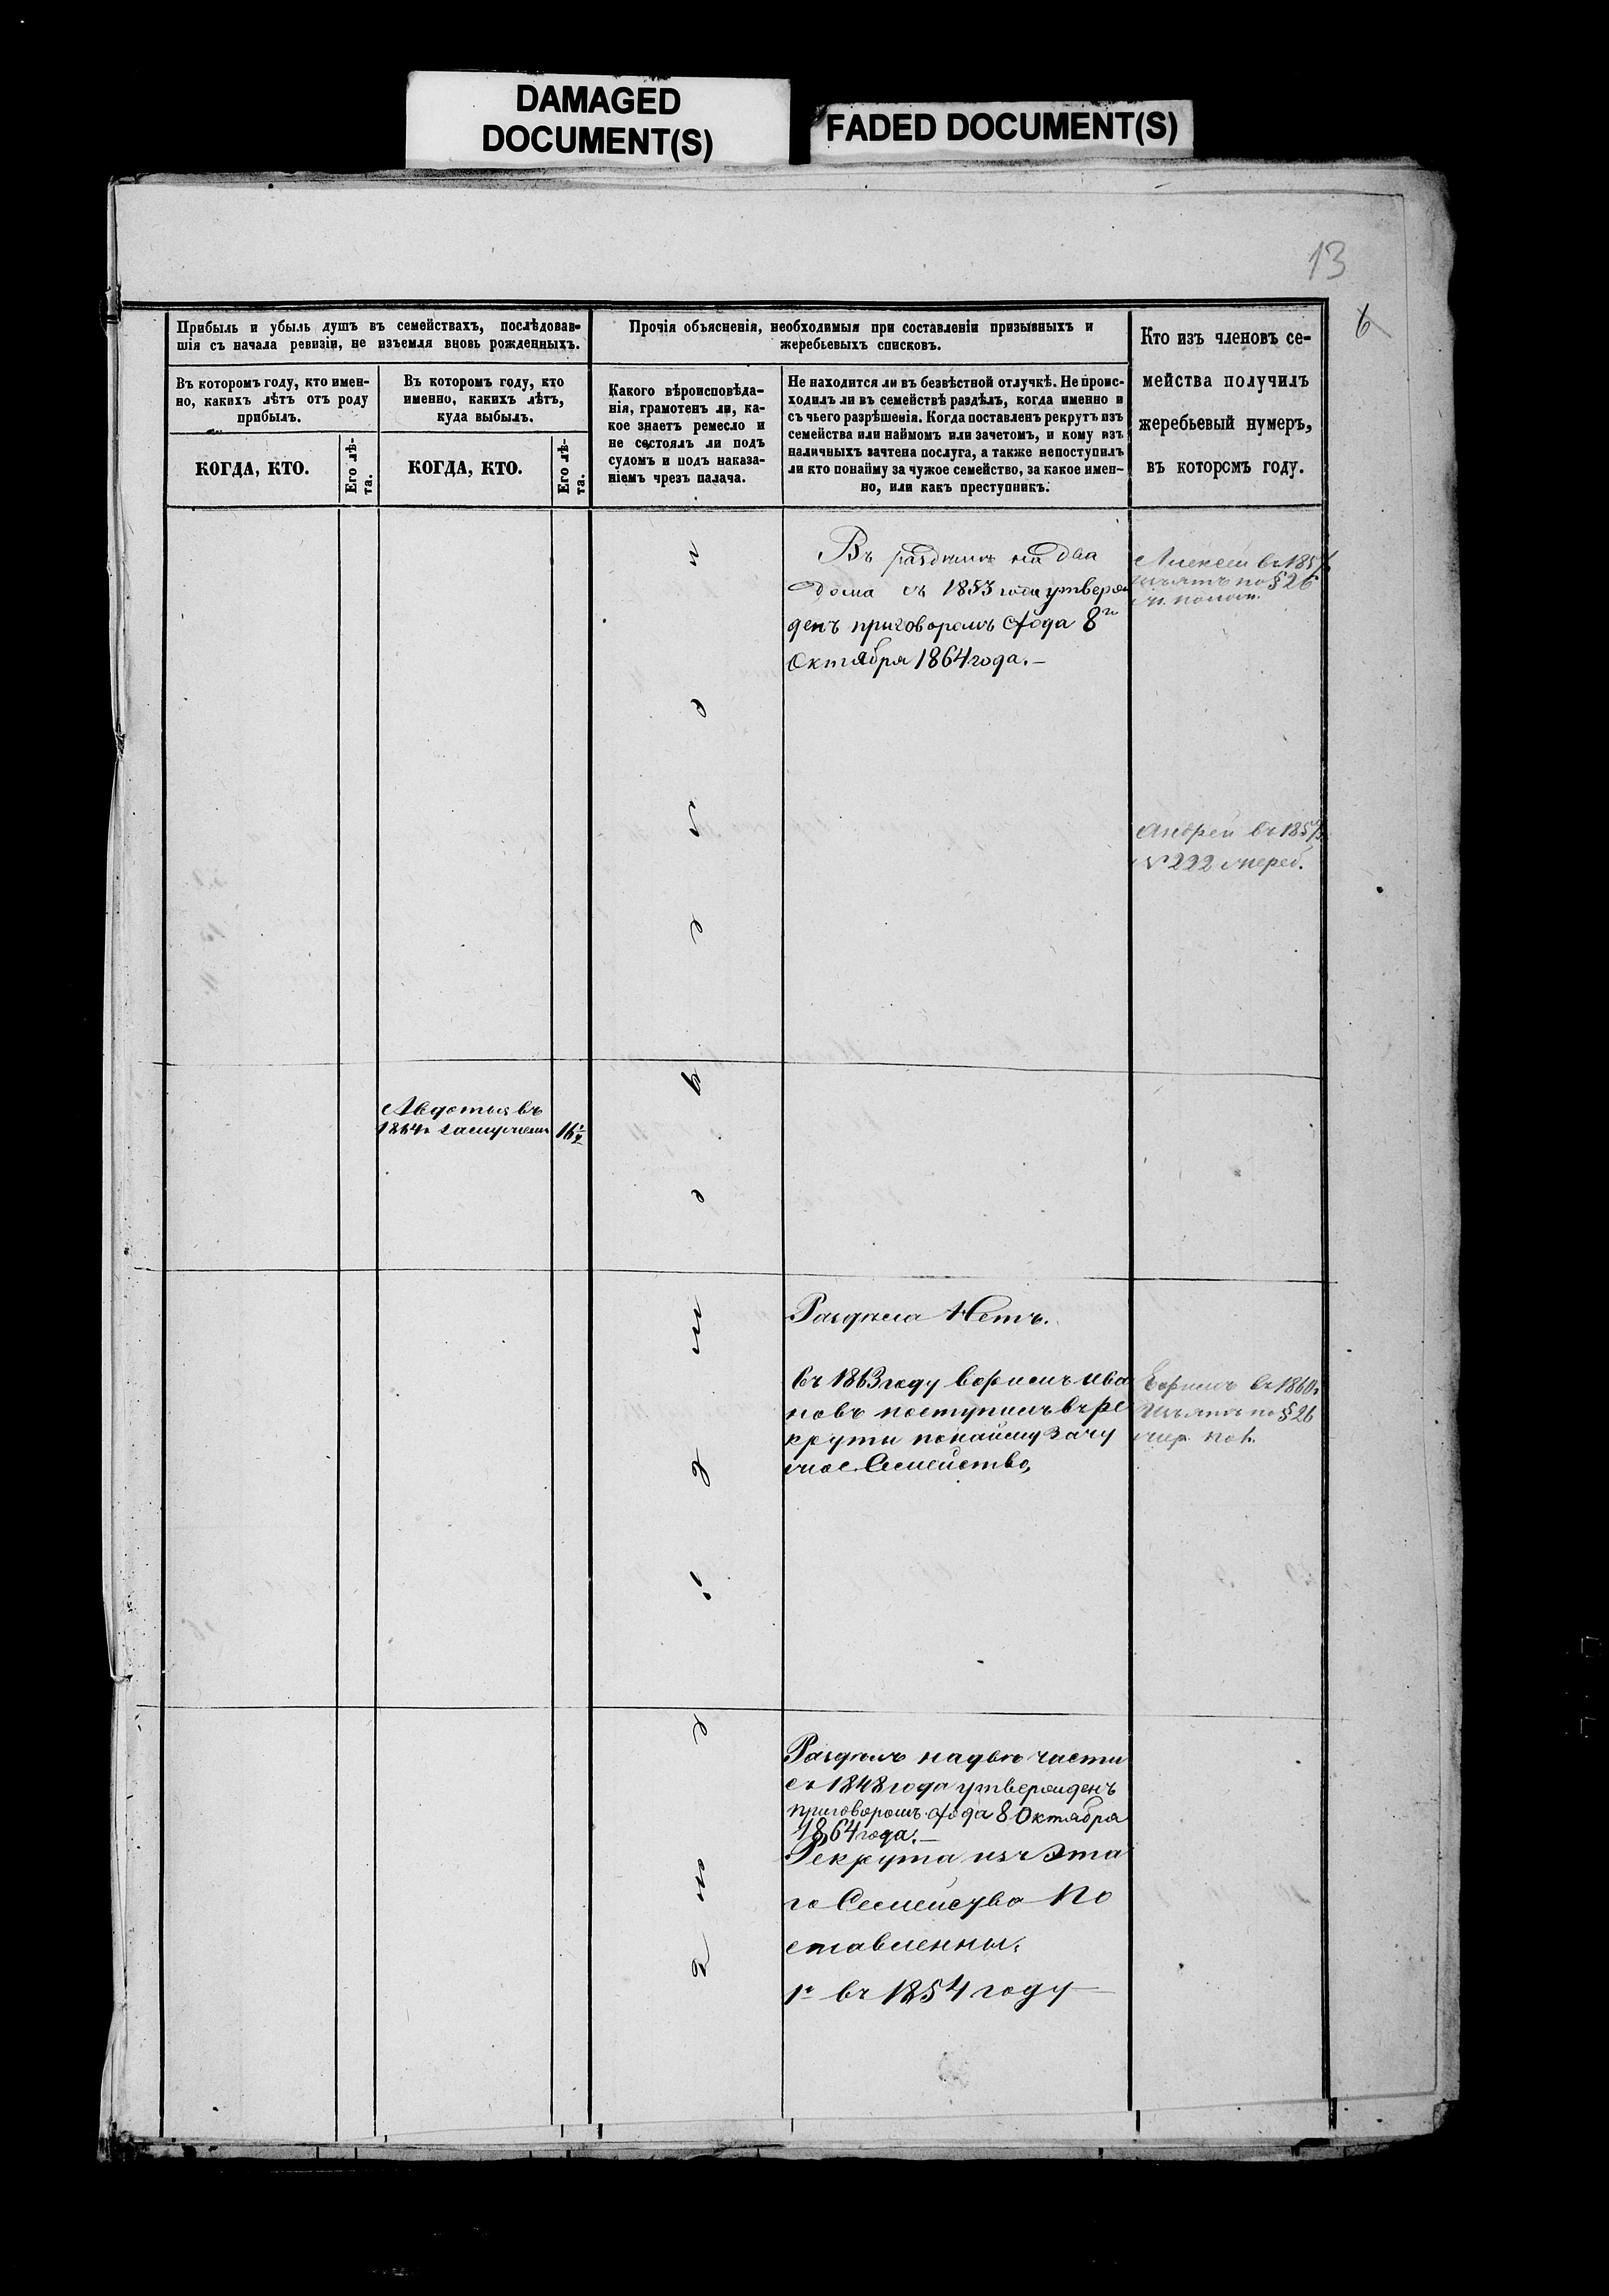 DAMAGED
DOCUMENT(S)
FADED DOCUMENT(S)
13
6
Прибыль и убыль душъ въ семействахъ, послѣдовав-
шія съ начала ревизіи, не изъемля вновь рожденныхъ.
Въ которомъ году, кто имен-
но, какихъ лѣтъ отъ роду
прибылъ.
Въ которомъ году, кто
именно, какихъ лѣтъ,
куда выбылъ.
КОГДА, КТО.
Его лѣ-
та.
КОГДА, КТО.
Его лѣ-
та.
Прочія объясненія, необходимыя при составленіи призывныхъ и
жеребьевыхъ списковъ.
Какого вѣроисповѣда-
нія, грамотенъ ли, ка-
кое знаетъ ремесло и
не состоялъ ли подъ
судомъ и подъ наказа-
ніемъ чрезъ палача.
Не находится ли въ безвѣстной отлучкѣ. Не проис-
ходилъ ли въ семействѣ раздѣлъ, когда именно и
съ чьего разрѣшенія. Когда поставленъ рекрутъ изъ
семейства или наймомъ или зачетомъ, и кому изъ
наличныхъ зачтена послуга, а также непоступилъ
ли кто понайму за чужое семейство, за какое имен-
но, или какъ преступникъ.
Кто изъ членовъ се-
мейства получилъ
жеребьевый нумеръ,
въ которомъ году.
Въ раздѣлѣ на два
дома съ 1853 года утверж
денъ приговоромъ схода 8го
Октября 1864 года. —
Алексей въ 185
изъятъ по § 26
Андрей въ 185
№ 222 жереб.
Авдотья въ
1864г замужемъ
16½
Раздѣла Нетъ.
въ 1863 году Ива
новъ поступилъ въ ре
круты понайму за чу
жое Семейство,
въ 1860г
Изъятъ по § 26
Раздѣлъ надвѣ части
съ 1848 года утвержденъ
приговоромъ схода 8 Октября
1864 года. —
Рекрута изъ Эта
го Семейства По
ставленны:
1й въ 1854 году —